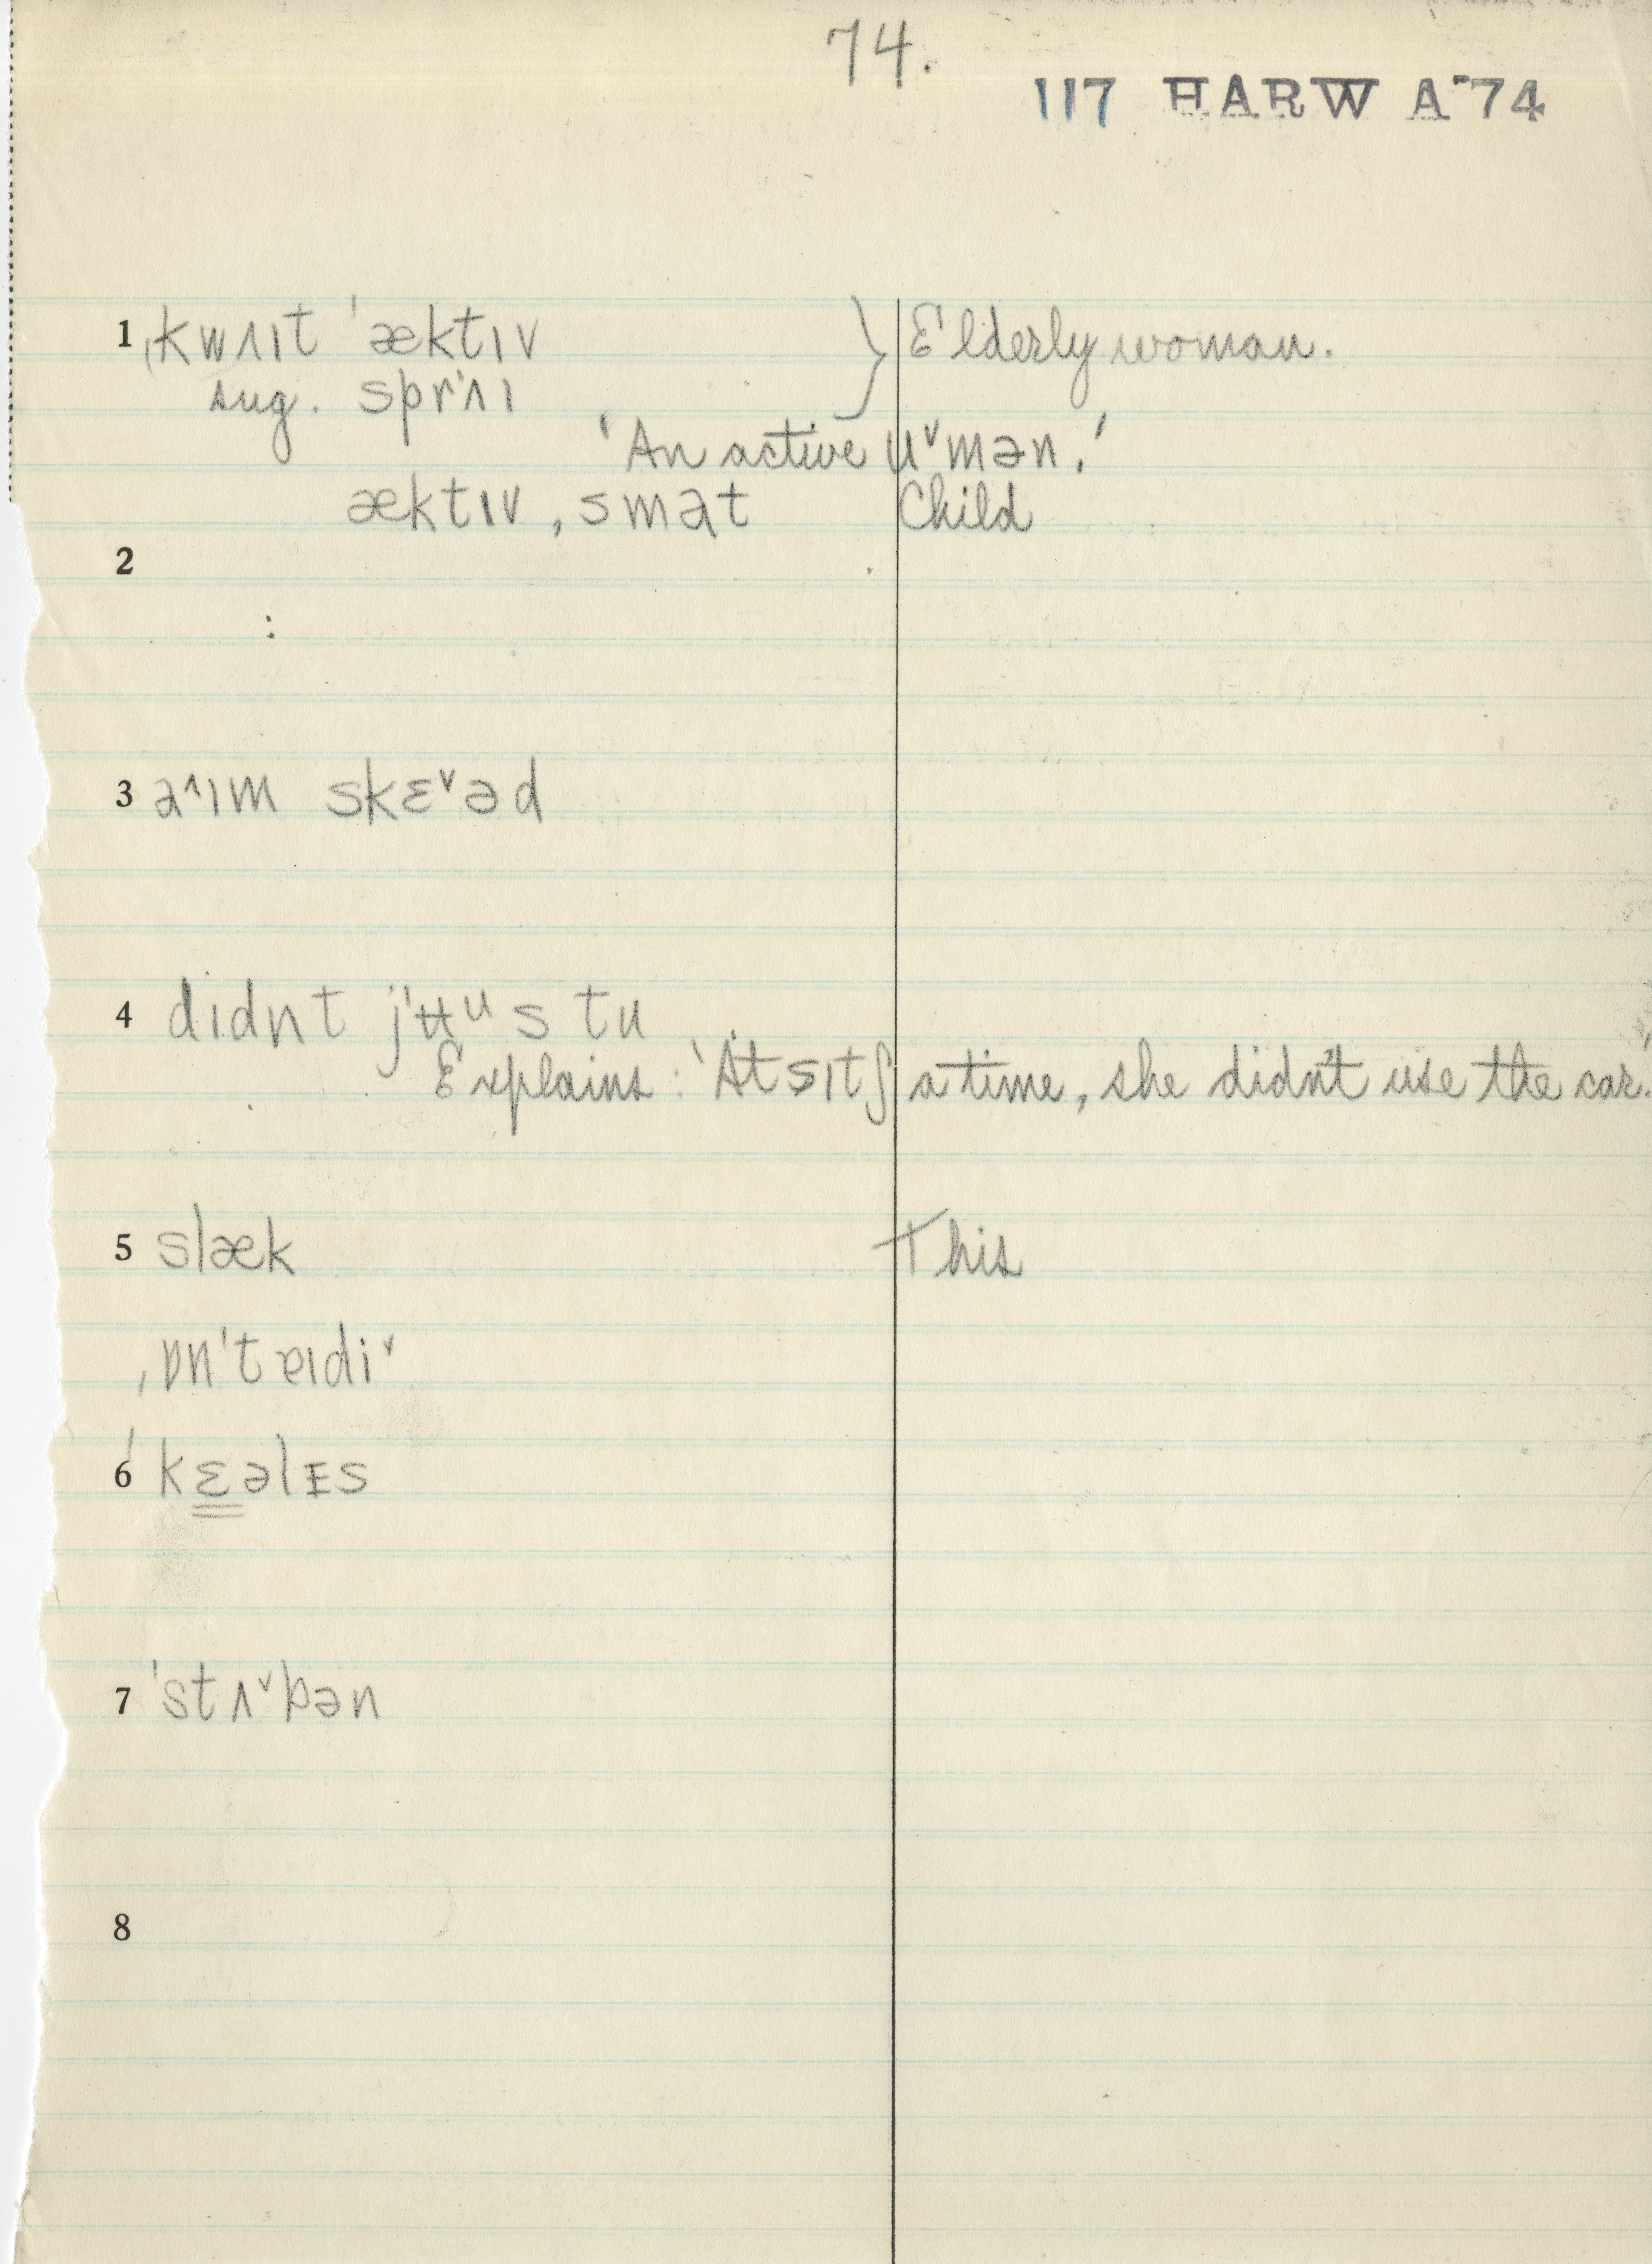 74.
117 HARW A-74
1 ˌkwʌɪt ˈæktɪv } Elderly woman.
sug. sprˈʌɪ
'An active ᴜˇmən.'
æktɪv, smat Child
2
:
3 a^ɪm skɛˇəd
4 dɪdnt jˈʉᵘs tu
Explains: 'At sɪtʃ a time, she didn't use the car.'
5 slæk This
ˌɒn'tɐɪdiˇ
6 ˈkɛəlɪs
7 ˈstʌˇbən
8